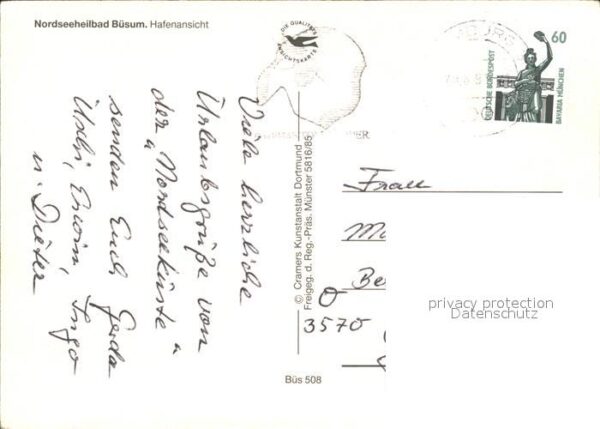 Nordseeheilbad Büsum. Hafenansicht
DIE QUALITÄTS
ANSICHTSKARTE
60
DEUTSCHE BUNDESPOST
BAVARIA MÜNCHEN
Viele herrliche
Urlaubsgrüße von
der "Nordseeküste"
senden Euch Gerda
Uschi, Erwin, Ingo
u. Dieter
© Cramers Kunstanstalt Dortmund
Freigeg. d. Reg.-Präs. Münster 5816/85
Büs 508
Frau
3570
privacy protection
Datenschutz